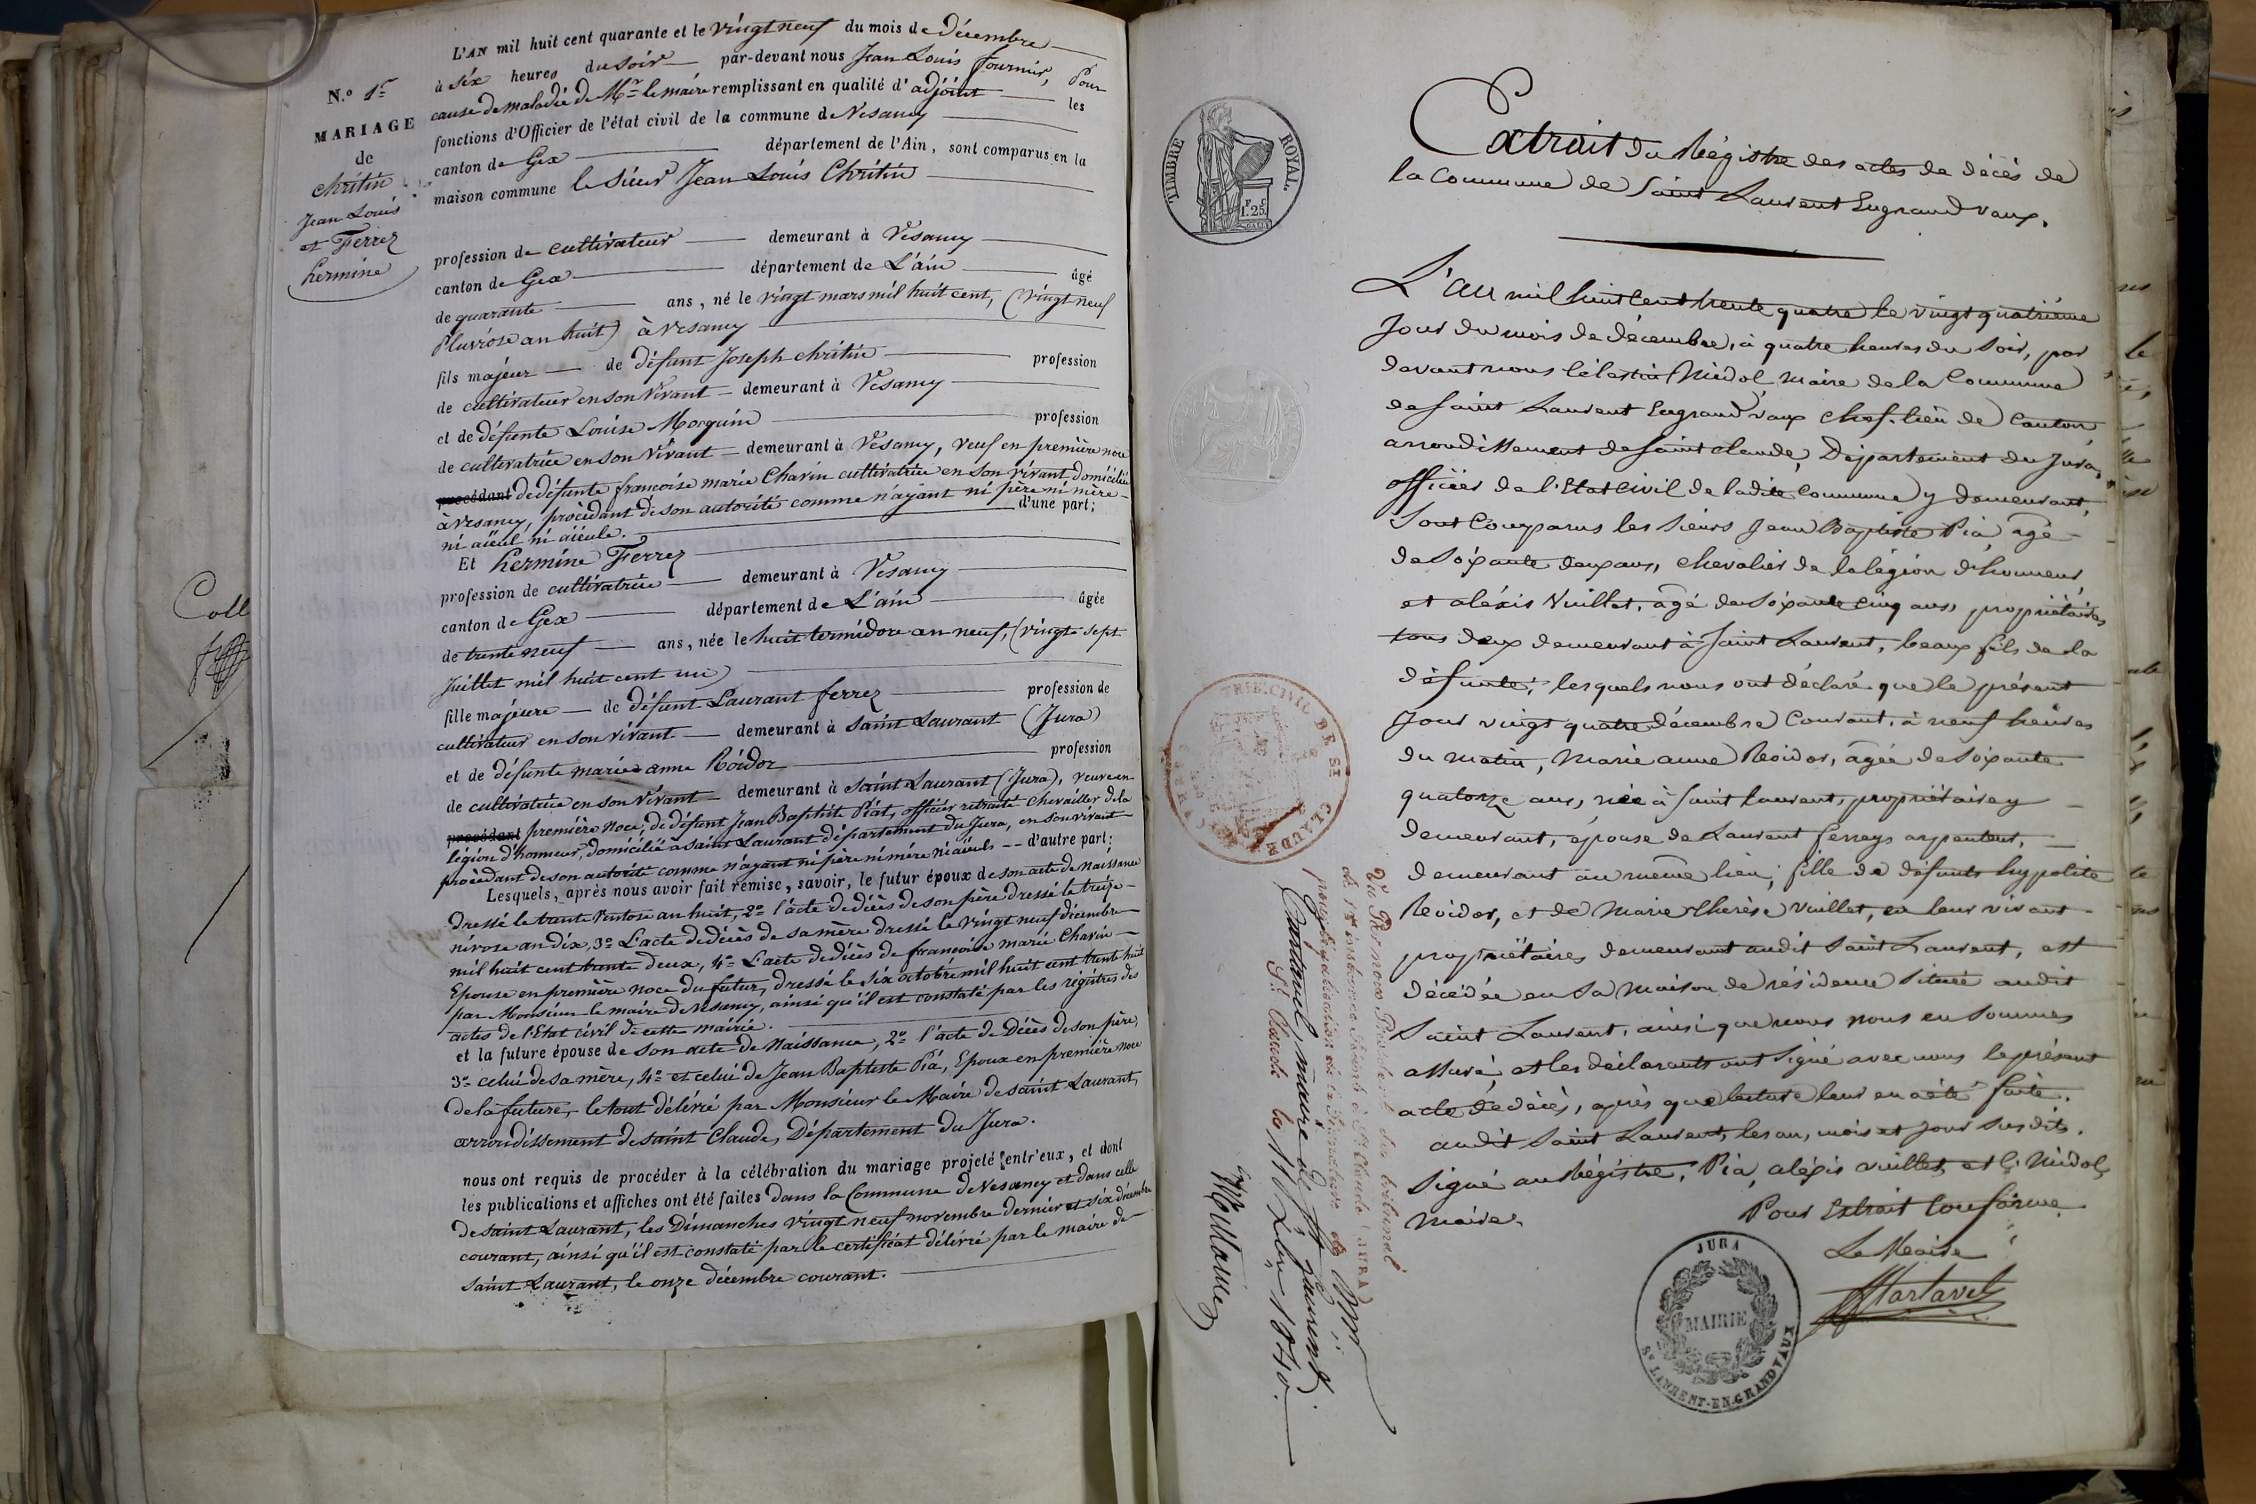 N.o 1er
MARIAGE
de
chrétin
Jean Louis
et Ferrez
hermine
L'AN mil huit cent quarante et le vingt neuf du mois de décembre
à six heures du soir par-devant nous Jean Louis fournier, Pour
cause de maladie de Mr le maire remplissant en qualité d'adjoint les
fonctions d'Officier de l'état civil de la commune de Vesancy
canton de Gex département de l'Ain, sont comparus en la
maison commune le sieur Jean Louis Chrétin
profession de cultivateur demeurant à Vesancy
canton de Gex département de L'ain âgé
de quarante ans, né le vingt mars mil huit cent, (vingt neuf
Pluviose an huit) à vesancy
fils majeur de défunt Joseph chrétin profession
de cultivateur en son vivant demeurant à Vesancy
et de défunte Louise Morquin profession
de cultivatrice en son vivant demeurant à Vesancy, veuf en première noce
procédant de défunte francoise marie Chavin cultivatrice en son vivant domiciliée
à vesancy, procédant de son autorité comme n'ayant ni père ni mère
ni aïeul ni aïeule. d'une part;
Et hermine Ferrez
profession de cultivatrice demeurant à Vesancy
canton de Gex département de L'ain âgée
de trente neuf ans, née le huit termidore an neuf, (vingt sept
Juillet mil huit cent un)
fille majeure de défunt Laurant ferrez profession de
cultivateur en son vivant demeurant à saint Laurant (Jura)
et de défunte marie anne Roidor profession
de cultivatrice en son vivant demeurant à saint Laurant (Jura), veuve en
procédant première noce, de défunt Jean Baptiste Piat, officier retraité chevailler de la
légion d'honneur, domicilié à saint Laurant département du Jura, en son vivant
procédant de son autorité comme n'ayant ni père ni mère ni aïeuls -- d'autre part;
Lesquels, après nous avoir fait remise, savoir, le futur époux de son acte de naissance
dressé le trente ventose an huit, 2o l'acte de décès de son père dressé le treize
nivose an dix, 3o L'acte de décès de sa mère dressé le vingt neuf décembre
mil huit cent trente deux, 4o L'acte de décès de francoise marie Chavin
Epouse en première noce du futur, dressé le six octobre mil huit cent trente huit
par Monsieur le maire de Vesancy, ainsi qu'il est constaté par les régistres des
actes de l'Etat civil de cette mairie.
et la future épouse de son acte de Naissance, 2o l'acte de Décès de son père,
3o celui de sa mère, 4o et celui de Jean Baptiste Piá, Epoux en première noce
de la future, le tout délivré par Monsieur le Maire de saint Laurant,
arrondissement de saint Claude, Département du Jura.
nous ont requis de procéder à la célébration du mariage projeté entr'eux, et dont
les publications et affiches ont été faites dans la Commune de Vesancy et dans celle
de saint Laurant, les Dimanches vingt neuf novembre dernier et six décembre
courant, ainsi qu'il est constaté par le certificat délivré par le maire de
saint Laurant, le onze décembre courant.
Coll
TIMBRE ROYAL
F C
1.25
Extrait du Régistre des actes de décès de
la Commune de Saint Laurent Engrandvaux.
L'an mil huit cent trente quatre le vingt quatrième
Jour du mois de décembre, à quatre heures du soir, par
devant nous Célestin Nidol maire de la Commune
de Saint Laurent Engrandvaux chef-lieu de Canton
arrondissement de Saint Claude, Département du Jura,
officier de l'Etat Civil de ladite Commune y demeurant,
Sont Comparus les Sieurs Jean Baptiste Pia agé
de soixante deux ans, chevalier de la légion d'honneur
et aléxis Vuillet, agé de soixante cinq ans, propriétaires
tous deux demeurant à Saint Laurent, beaux fils de la
défunte, lesquels nous ont déclaré que le présent
Jour vingt quatre décembre Courant, à neuf heures
du matin, Marie anne Roidor, agée de soixante
quatorze ans, née à Saint Laurent, propriétaire y
demeurant, épouse de Laurent ferreys arpenteur,
demeurant au même lieu, fille de défunts hypolite
Roidor, et de Marie Thérèse Vuillet, en leur vivant
propriétaires demeurant audit Saint Laurent, est
décédée en sa maison de résidence située audit
Saint Laurent, ainsi que nous nous en sommes
assuré et les déclarants ont signé avec nous le présent
acte de décès, après que lecture leur en a été faite.
audit Saint Laurent, les an, mois et jour susdits.
Signé au Régistre, Pia, aléxis vuillet, et C. Nidol,
maire.
Pour Extrait Conforme
Le Maire
JURA
MAIRIE
St LAURENT-EN-GRANDVAUX
TRIB. CIVIL DE St CLAUDE
Vu Par nous Président du tribunal
de 1re instance séant à St Claude (JURA)
pour légalisation de la Signature de Mr
maire de St Laurent.
St Claude le 11 1840.